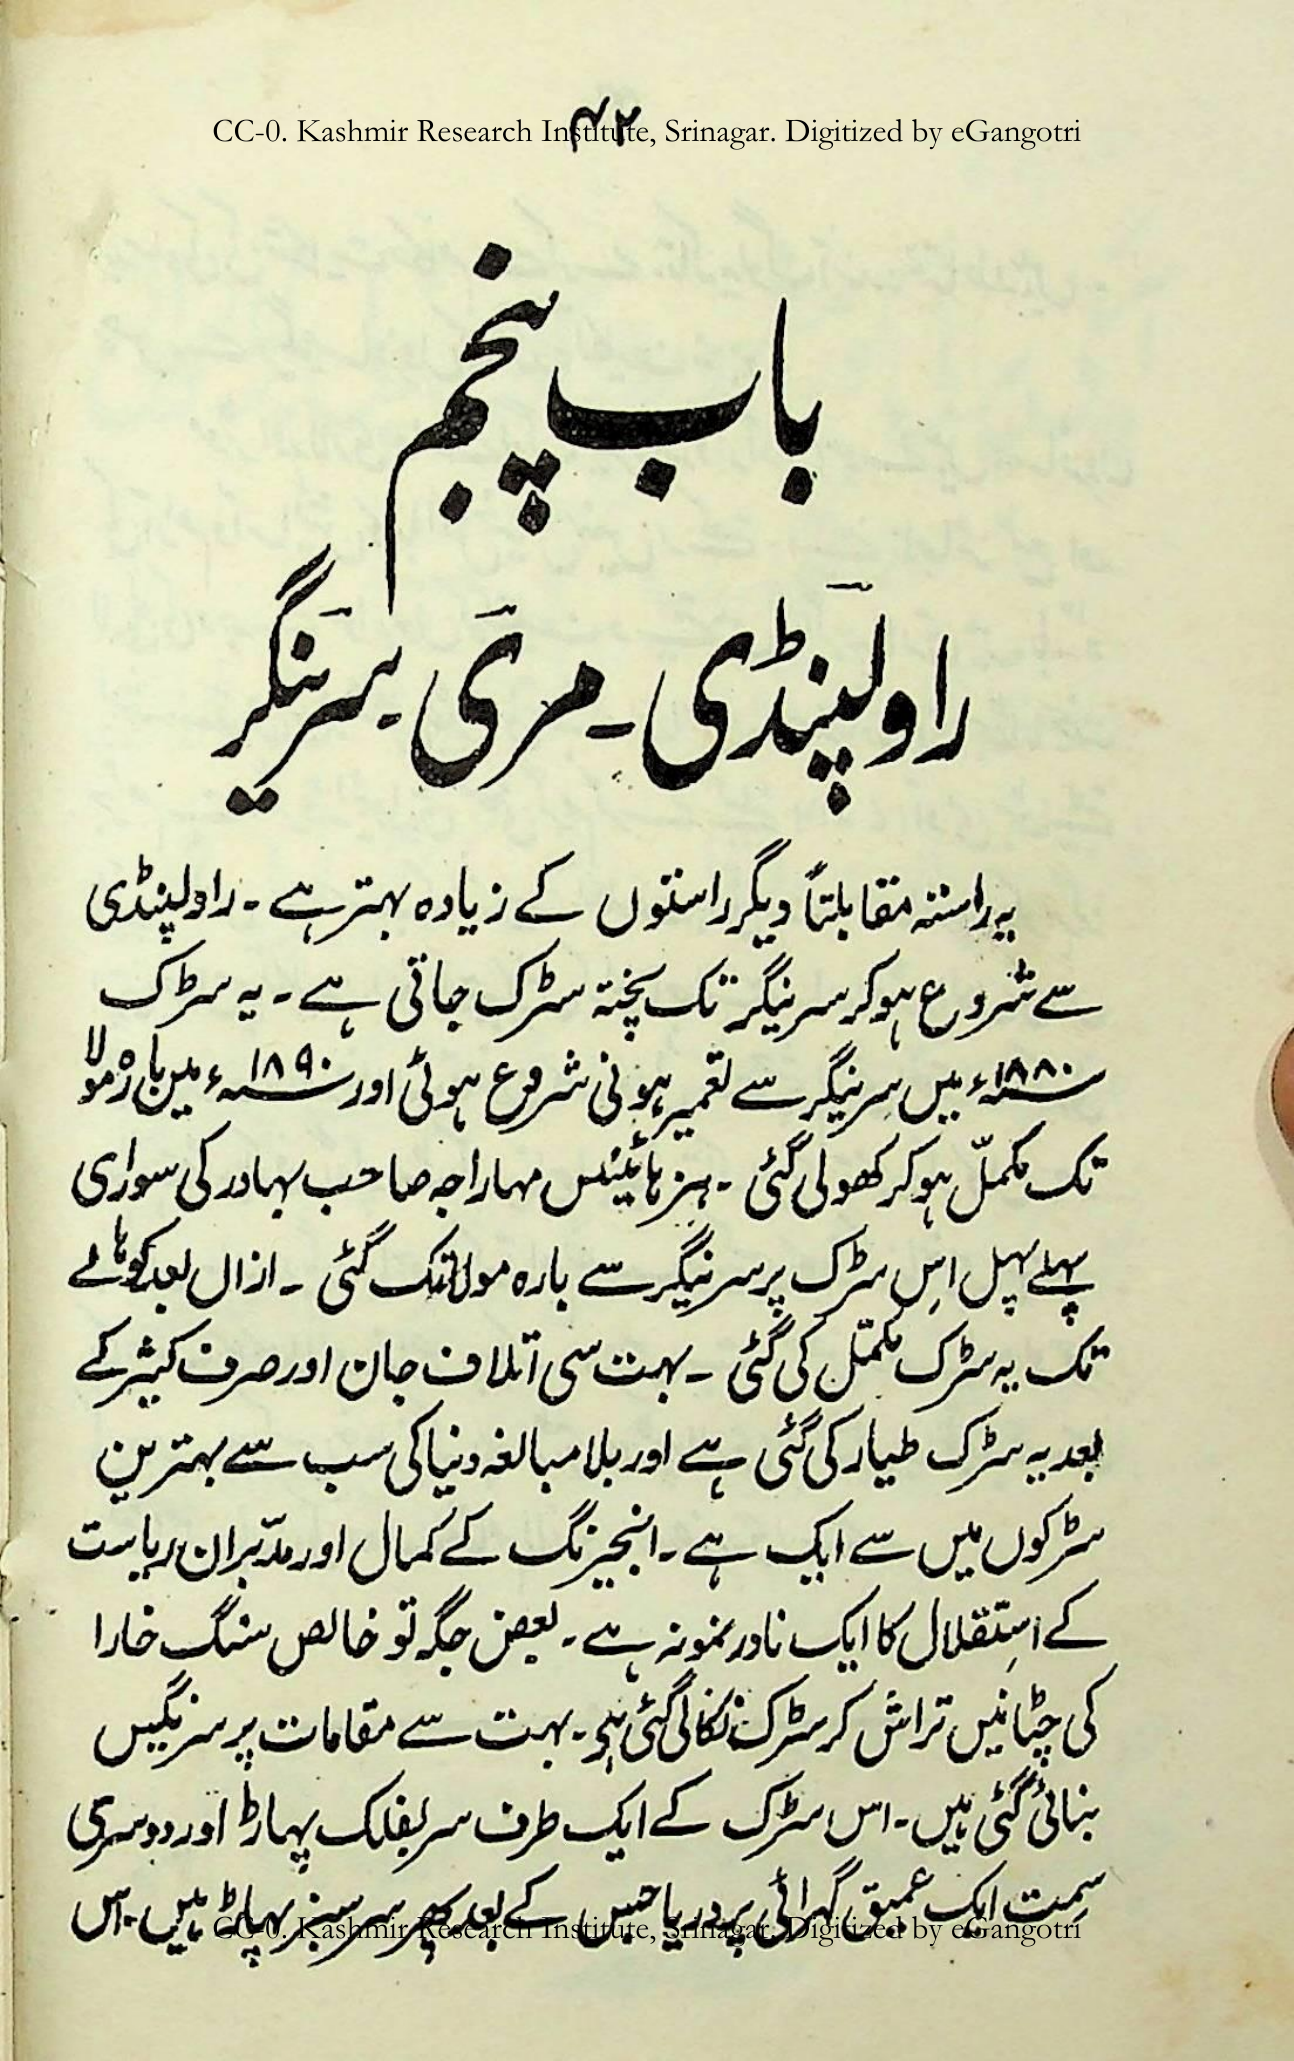 ۴۲
CC-0. Kashmir Research Institute, Srinagar. Digitized by eGangotri
باب پنجم
راولپنڈی ۔ مری ۔ سرینگر
یہ راستہ مقابلتاً دیگر راستوں کے زیادہ بہتر ہے ۔ راولپنڈی
سے شروع ہوکر سرینگر تک پختہ سڑک جاتی ہے ۔ یہ سڑک
۱۸۸۰ء میں سرینگر سے تعمیر ہونی شروع ہوئی اور ۱۸۹۰ء میں بارہ مولا
تک مکمّل ہوکر کھولی گئی ۔ ہز ہائینس مہاراجہ صاحب بہادر کی سواری
پہلے پہل اِس سڑک پر سرینگر سے بارہ مولا تک گئی ۔ ازاں بعد کوہالے
تک یہ سڑک مکمّل کی گئی ۔ بہت سی اتلاف جان اور صرف کثیر کے
بعد یہ سڑک طیار کی گئی ہے اور بلا مبالغہ دنیا کی سب سے بہترین
سڑکوں میں سے ایک ہے ۔ انجیزنگ کے کمال اور مدّبران ریاست
کے اِستقلال کا ایک نادر نمونہ ہے ۔ بعض جگہ تو خالص سنگ خارا
کی چٹانیں تراش کر سڑک نکالی گئی ہے ۔ بہت سے مقامات پر سرنگیں
بنائی گئی ہیں ۔ اس سڑک کے ایک طرف سر بفلک پہاڑ اور دوسری
سِمت ایک عمیق گہرائی پر دریا جس کے بعد پھر سرسبز پہاڑ ہیں ۔ اس
CC-0. Kashmir Research Institute, Srinagar. Digitized by eGangotri